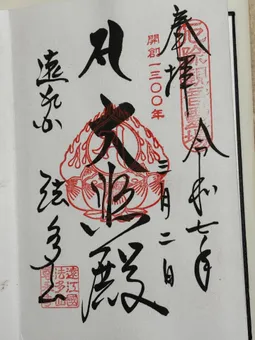 奉拝
令和七年
三月二日
開創一三〇〇年
大悲殿
遠州
法多山
遠江國
法多山